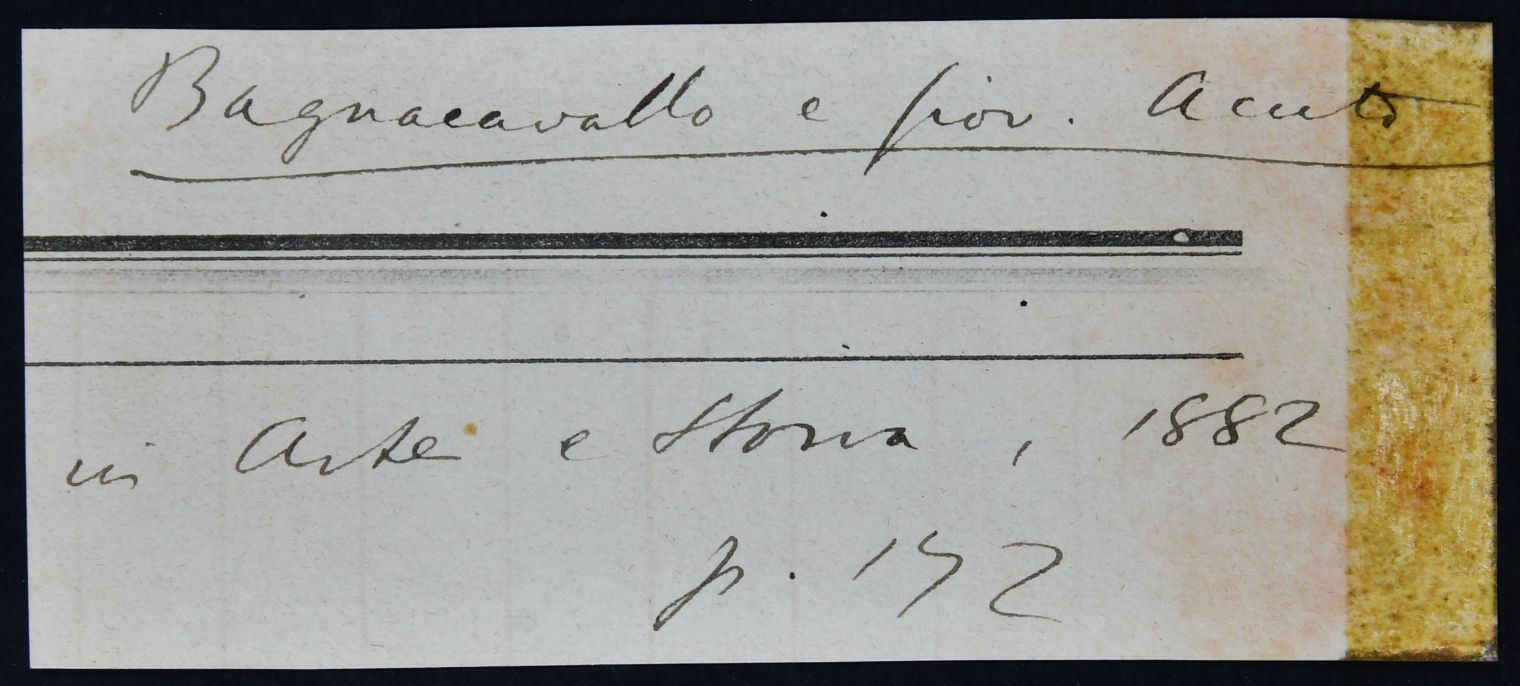 Bagnacavallo e Giov. Acuto
in Arte e Storia, 1882
p. 172